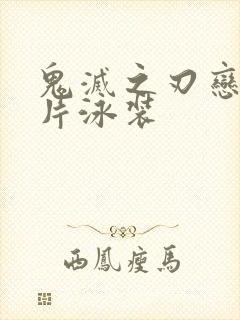 鬼滅之刃戀
片泳裝
西鳳瘦馬